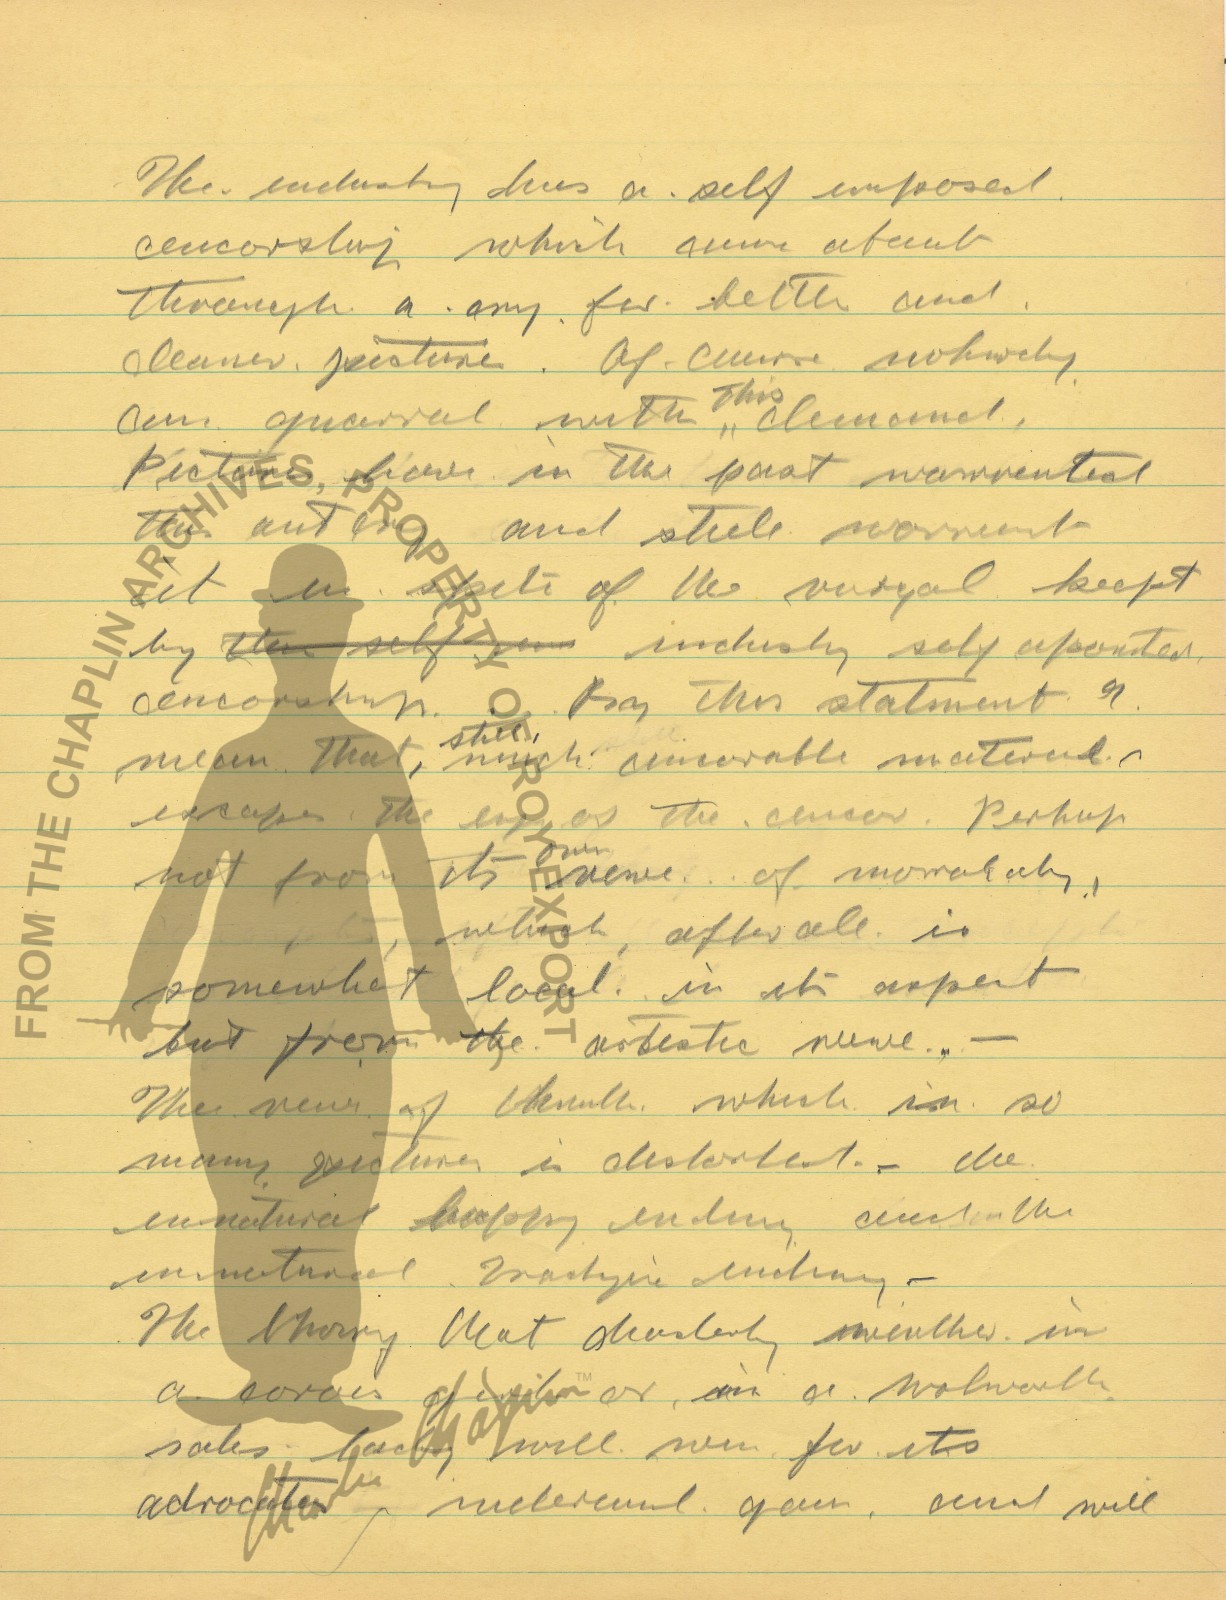 The industry has a self imposed
censorship which came about
through a cry for better and
cleaner pictures. Of course nobody
can quarrel with this demand.
Pictures have in the past warrented
this outcry and still warrent
it in spite of the keept
by this self industry self apointed
censorship. By this statment I
mean that, still, much censorable material
escapes the eye of the censor. Perhap
not from its own veiw of morality,
which, after all is
somewhat local in its aspect
but from the artistic veiwe. —
The veiw of which in so
many pictures is distorted. – the
unnatural happy ending and the
unnatural ending –
The theory that chastity in
a chorus girl or in a Wolworth
sales lady will win for its
advocates gain, and will
FROM THE CHAPLIN ARCHIVES, PROPERTY OF ROY EXPORT
Charlie Chaplin™